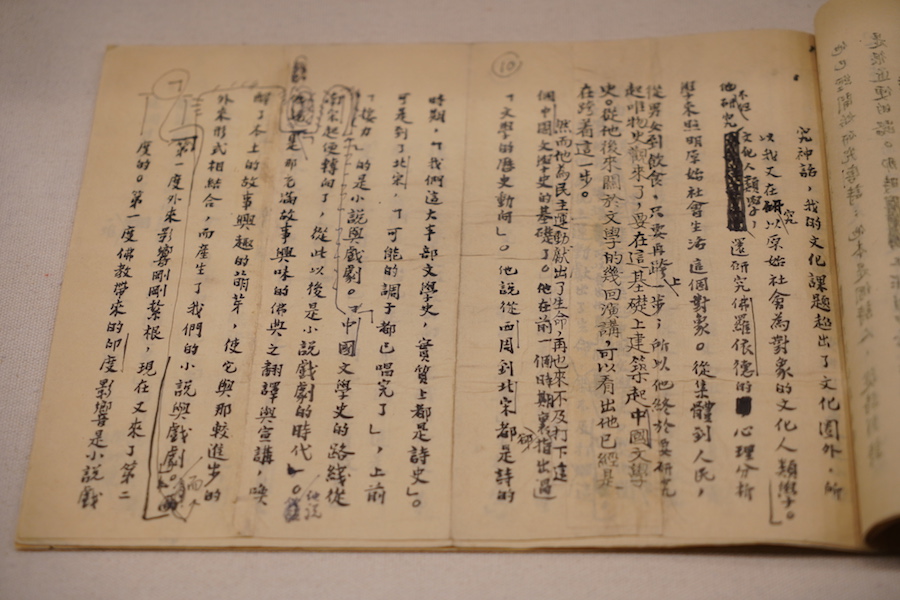 究神話，我的文化課題超出了文化圈外，所
以我又在研究以原始社會為對象的文化人類學。
他不但研究文化人類學，還研究佛羅依德的心理分析
學來照明原始社會生活這個對象。從集體到人民，
從男女到飲食，只要再跨上一步；所以他終於要研究
起唯物史觀來了，要在這基礎上建築起中國文學
史。從他後來關於文學的幾回演講，可以看出他已經是
在跨着這一步。
然而他為民主運動獻出了生命，再也來不及打下這
個中國文學史的基礎了。他在前一個時期裏卻指出過
「文學的歷史動向」。他說從西周到北宋都是詩的
10
時期，「我們這大半部文學史，實質上都是詩史」。
可是到了北宋，「可能的調子都已唱完了」，上前
「接力」的是小說與戲劇。「中國文學史的路綫從
南宋起便轉向了，從此以後是小說戲劇的時代」。他說
是那充滿故事興味的佛典之翻譯與宣講，喚
醒了本土的故事興趣的萌芽，使它與那較進步的
外來形式相結合，而產生了我們的小說與戲劇。
第一度外來影響剛剛紮根，現在又來了第二
度的。第一度佛教帶來的印度影響是小說戲